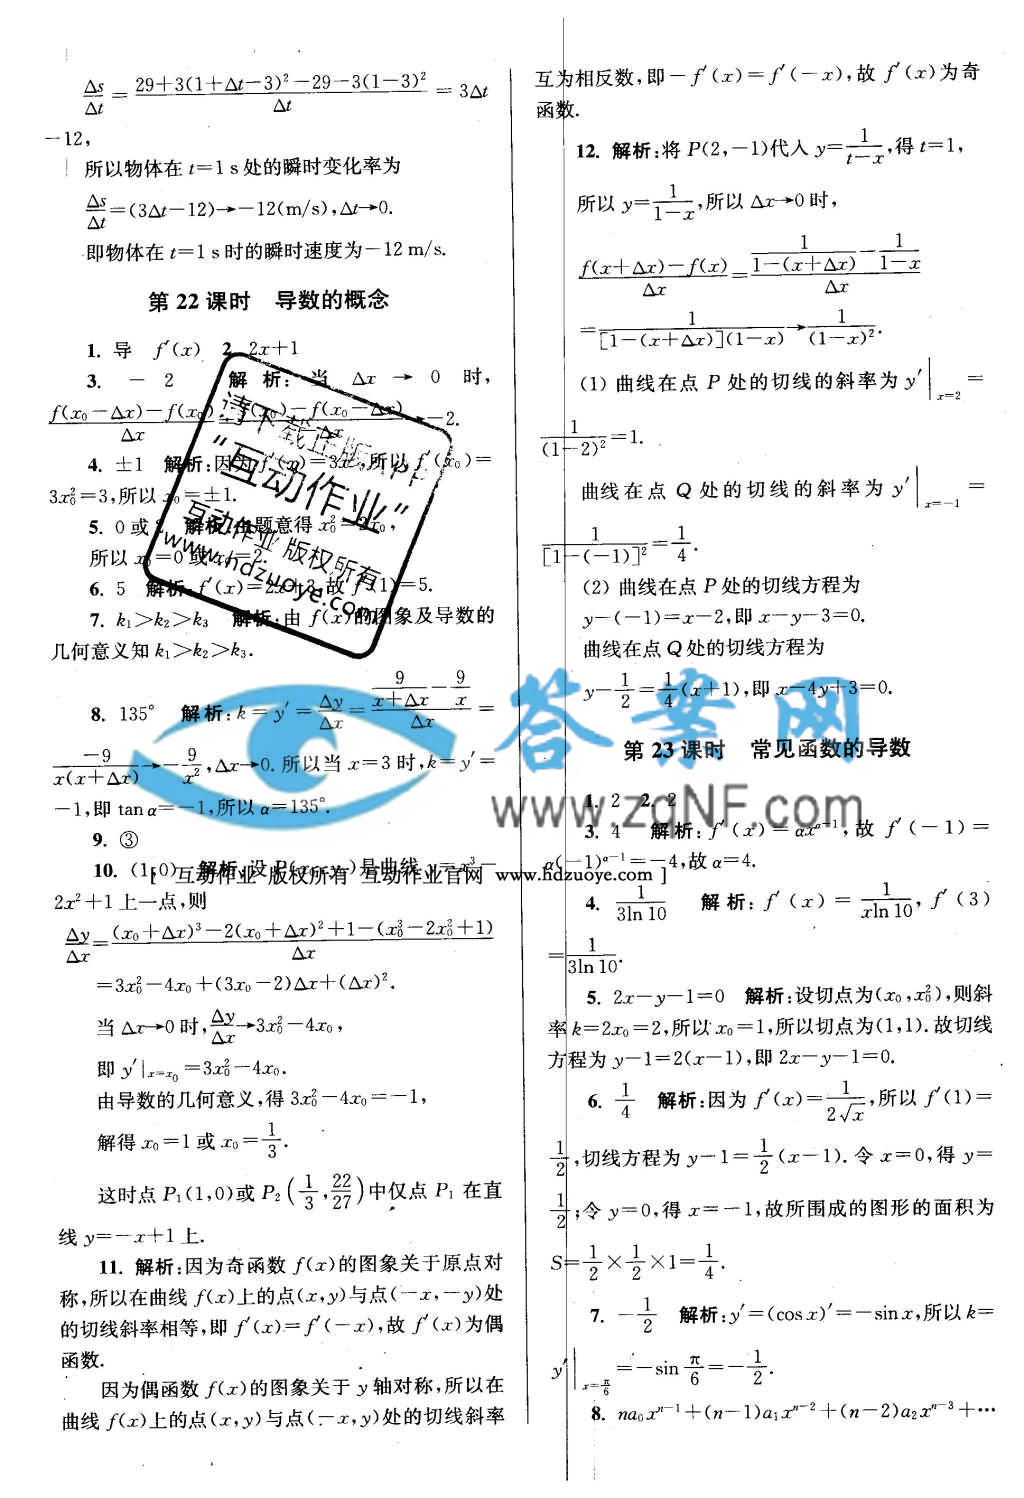 Δs/Δt = (29+3(1+Δt−3)²−29−3(1−3)²)/Δt = 3Δt
−12,
所以物体在 t=1 s处的瞬时变化率为
Δs/Δt=(3Δt−12)→−12(m/s),Δt→0.
即物体在 t=1 s时的瞬时速度为−12 m/s.
第 22 课时　导数的概念
1. 导　f′(x)　2. 2x+1
3. −2　解析:当 Δx → 0 时,
f(x₀−Δx)−f(x₀)/Δx　f(x₀)−f(x₀−Δx)　→−2.
4. ±1　解析:因为f′(x)=3x²,所以 f′(x₀)=
3x₀²=3,所以 x₀=±1.
5. 0或2　解析:由题意得 x₀²=2x₀,
所以 x₀=0或x₀=2.
6. 5　解析:f′(x)=2x+3,故 f′(1)=5.
7. k₁>k₂>k₃　解析:由 f(x)的图象及导数的
几何意义知 k₁>k₂>k₃.
8. 135°　解析:k=y′=Δy/Δx=(9/(x+Δx)−9/x)/Δx=
−9/(x(x+Δx))→−9/x²,Δx→0.所以当 x=3时,k=y′=
−1,即 tan α=−1,所以 α=135°.
9. ③
10. (1,0)　解析:设 P(x₀,y₀)是曲线 y=x³−
2x²+1上一点,则
Δy/Δx=((x₀+Δx)³−2(x₀+Δx)²+1−(x₀³−2x₀²+1))/Δx
=3x₀²−4x₀+(3x₀−2)Δx+(Δx)².
当 Δx→0时,Δy/Δx→3x₀²−4x₀,
即 y′|x=x₀=3x₀²−4x₀.
由导数的几何意义,得 3x₀²−4x₀=−1,
解得 x₀=1或 x₀=1/3.
这时点 P₁(1,0)或 P₂(1/3,22/27)中仅点 P₁ 在直
线 y=−x+1上.
11. 解析:因为奇函数 f(x)的图象关于原点对
称,所以在曲线 f(x)上的点(x,y)与点(−x,−y)处
的切线斜率相等,即 f′(x)=f′(−x),故 f′(x)为偶
函数.
因为偶函数 f(x)的图象关于 y 轴对称,所以在
曲线 f(x)上的点(x,y)与点(−x,y)处的切线斜率
互为相反数,即−f′(x)=f′(−x),故 f′(x)为奇
函数.
12. 解析:将 P(2,−1)代入 y=1/(t−x),得 t=1,
所以 y=1/(1−x),所以 Δx→0时,
(f(x+Δx)−f(x))/Δx=(1/(1−(x+Δx))−1/(1−x))/Δx
=1/([1−(x+Δx)](1−x))→1/(1−x)².
(1) 曲线在点 P 处的切线的斜率为 y′|x=2=
1/(1−2)²=1.
曲线在点 Q 处的切线的斜率为 y′|x=−1=
1/[1−(−1)]²=1/4.
(2) 曲线在点 P处的切线方程为
y−(−1)=x−2,即 x−y−3=0.
曲线在点 Q处的切线方程为
y−1/2=1/4(x+1),即 x−4y+3=0.
第 23 课时　常见函数的导数
1. 2　2. 2
3. 4　解析:f′(x)=αx^(α−1),故 f′(−1)=
α(−1)^(α−1)=−4,故 α=4.
4. 1/(3ln 10)　解析:f′(x)=1/(xln 10),f′(3)
=1/(3ln 10).
5. 2x−y−1=0　解析:设切点为(x₀,x₀²),则斜
率 k=2x₀=2,所以 x₀=1,所以切点为(1,1).故切线
方程为 y−1=2(x−1),即 2x−y−1=0.
6. 1/4　解析:因为 f′(x)=1/(2√x),所以 f′(1)=
1/2,切线方程为 y−1=1/2(x−1).令 x=0,得 y=
1/2;令 y=0,得 x=−1,故所围成的图形的面积为
S=1/2×1/2×1=1/4.
7. −1/2　解析:y′=(cos x)′=−sin x,所以 k=
y′|x=π/6=−sin π/6=−1/2.
8. na₀xⁿ⁻¹+(n−1)a₁xⁿ⁻²+(n−2)a₂xⁿ⁻³+⋯
请下载正版APP
“互动作业”
互动作业 版权所有
www.hdzuoye.com
答案网
www.zqNF.com
[ 互动作业 版权所有 互动作业官网 www.hdzuoye.com ]